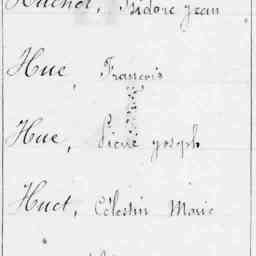 Huchol, Isidore Jean
Hue, François
Hue, Pierre Joseph
Huet, Célestin Marie